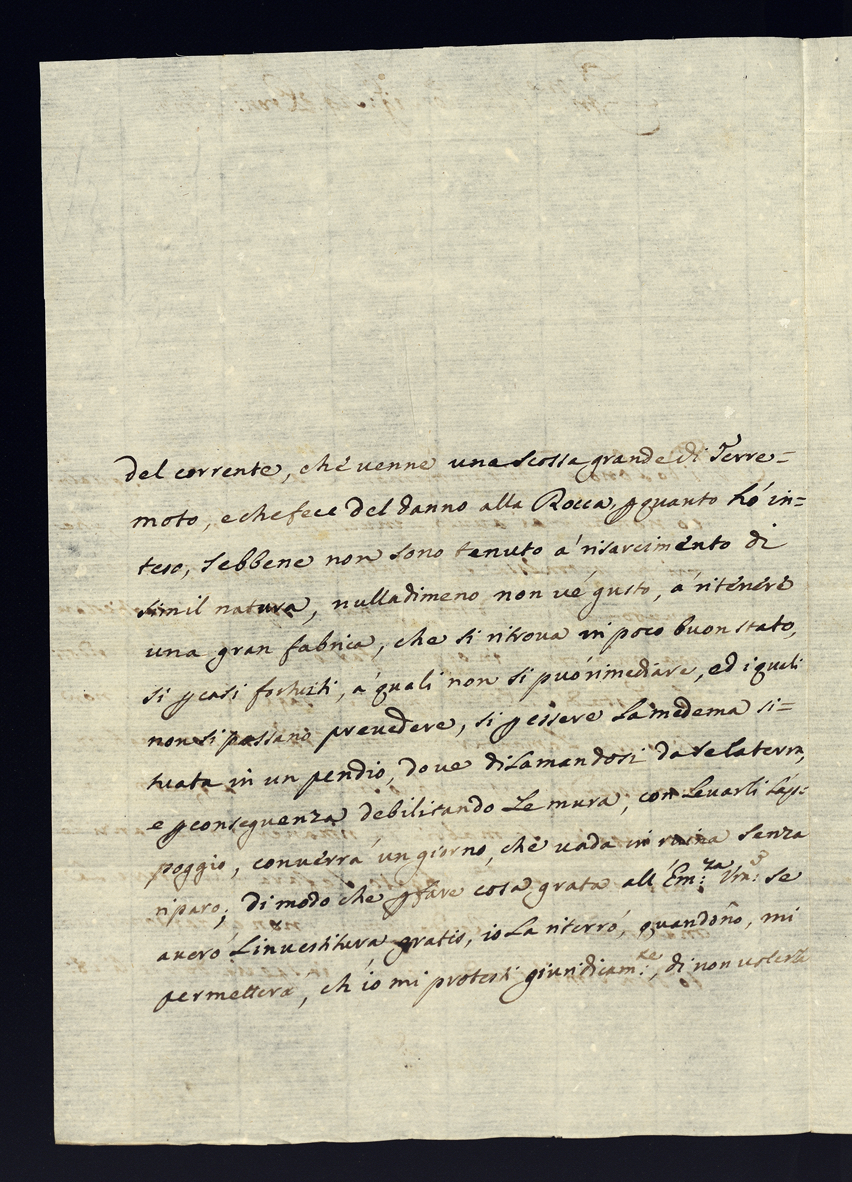 del corrente, che venne una scossa grande di Terre=
moto, e che fece del danno alla Rocca, p quanto hò in=
teso, sebbene non sono tenuto à risarcimento di
simil natura, nulladimeno non v'é gusto, à ritenere
una gran fabrica, che si ritrova in poco buon stato,
si p casi fortuiti, a' quali non si può rimediare, ed i quali
non si possano prevedere, si p essere la medema si=
tuata in un pendio, dove dilamandosi da se la terra,
e p conseguenza debilitando le mura, con levarli l'ap=
poggio, converrà un giorno, che vada in ruina senza
riparo; di modo che p fare cosa grata all'Em:za Vra: se
averò L'investitura gratis, io la riterró, quando nõ, mi
permetterà, ch'io mi protesti giuridicam:te, di non volerla